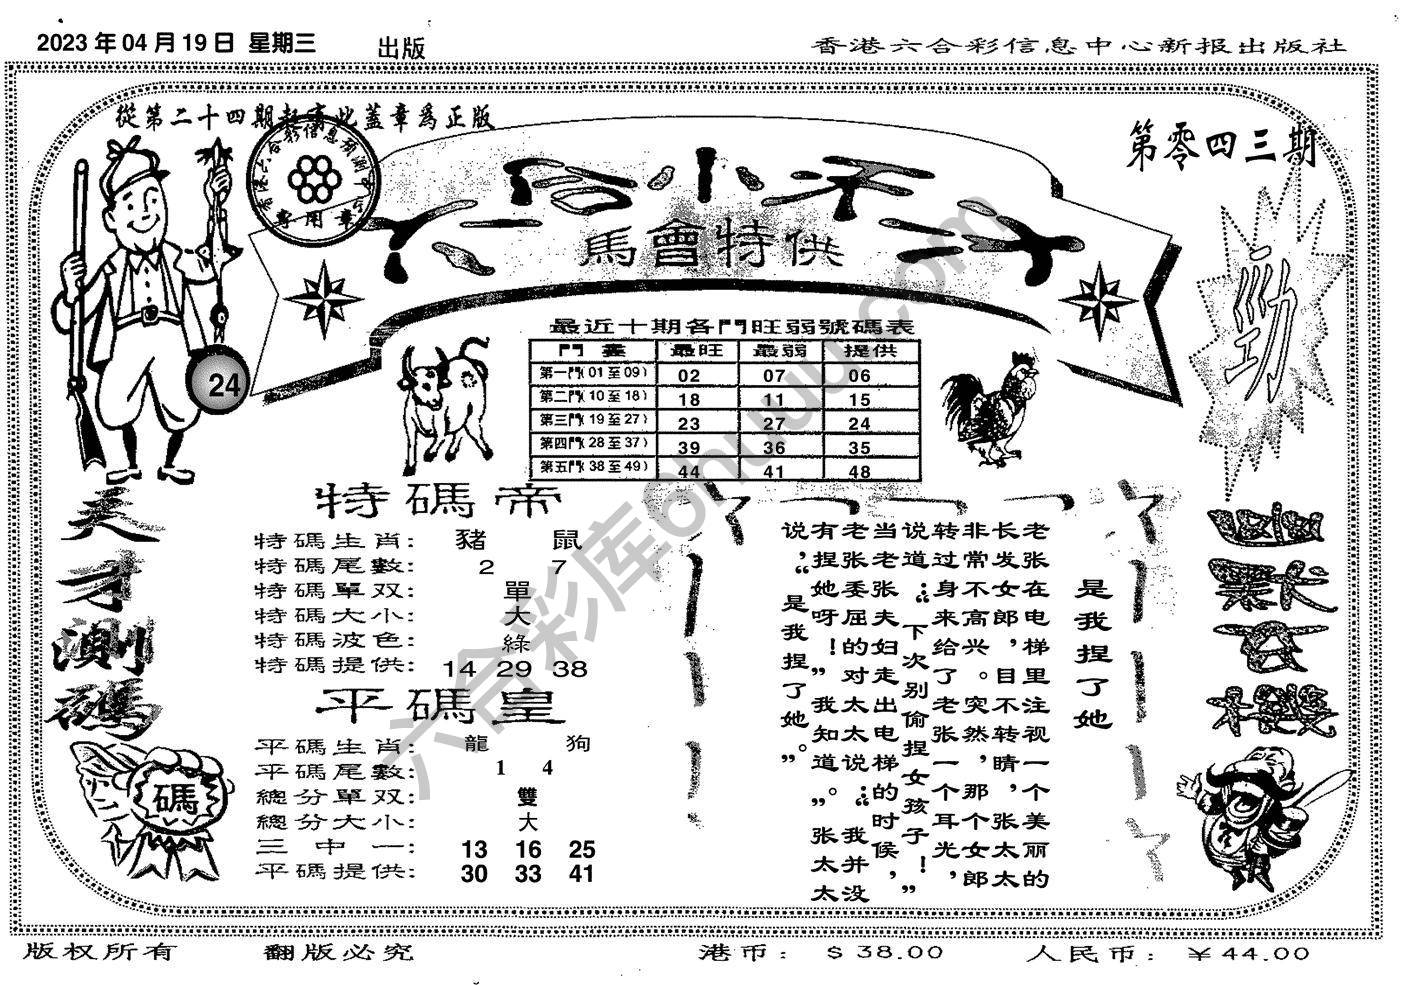 2023 年 04 月 19 日 星期三 出版
香港六合彩信息中心新报出版社
從第二十四期起 此蓋章爲正版
第零四三期
專用章
馬會特供
勁
24
最近十期各門旺弱號碼表
門 最旺 最弱 提供
第一門(01至09) 02 07 06
第二門(10至18) 18 11 15
第三門(19至27) 23 27 24
第四門(28至37) 39 36 35
第五門(38至49) 44 41 48
天才測碼
特碼帝
特碼生肖: 豬 鼠
特碼尾數: 2 7
特碼單双: 單
特碼大小: 大
特碼波色: 綠
特碼提供: 14 29 38
平碼皇
平碼生肖: 龍 狗
平碼尾數: 1 4
總分單双: 雙
總分大小: 大
三中一: 13 16 25
平碼提供: 30 33 41
碼
是我捏了她
老张在电梯里注视一个美丽的
长发女郎,目不转睛,张太太
非常不高兴。突然,那个女郎
转过身来给了老张一个耳光,
说道:“下次别偷捏女孩子!”
当老张夫妇走出电梯的时候,
老张委屈的对太太说:“我并没
有捏她呀!”“我知道。”张太太
说,“是我捏了她。”
版权所有 翻版必究 港币: $38.00 人民币: ¥44.00
六合彩库6huuu.com